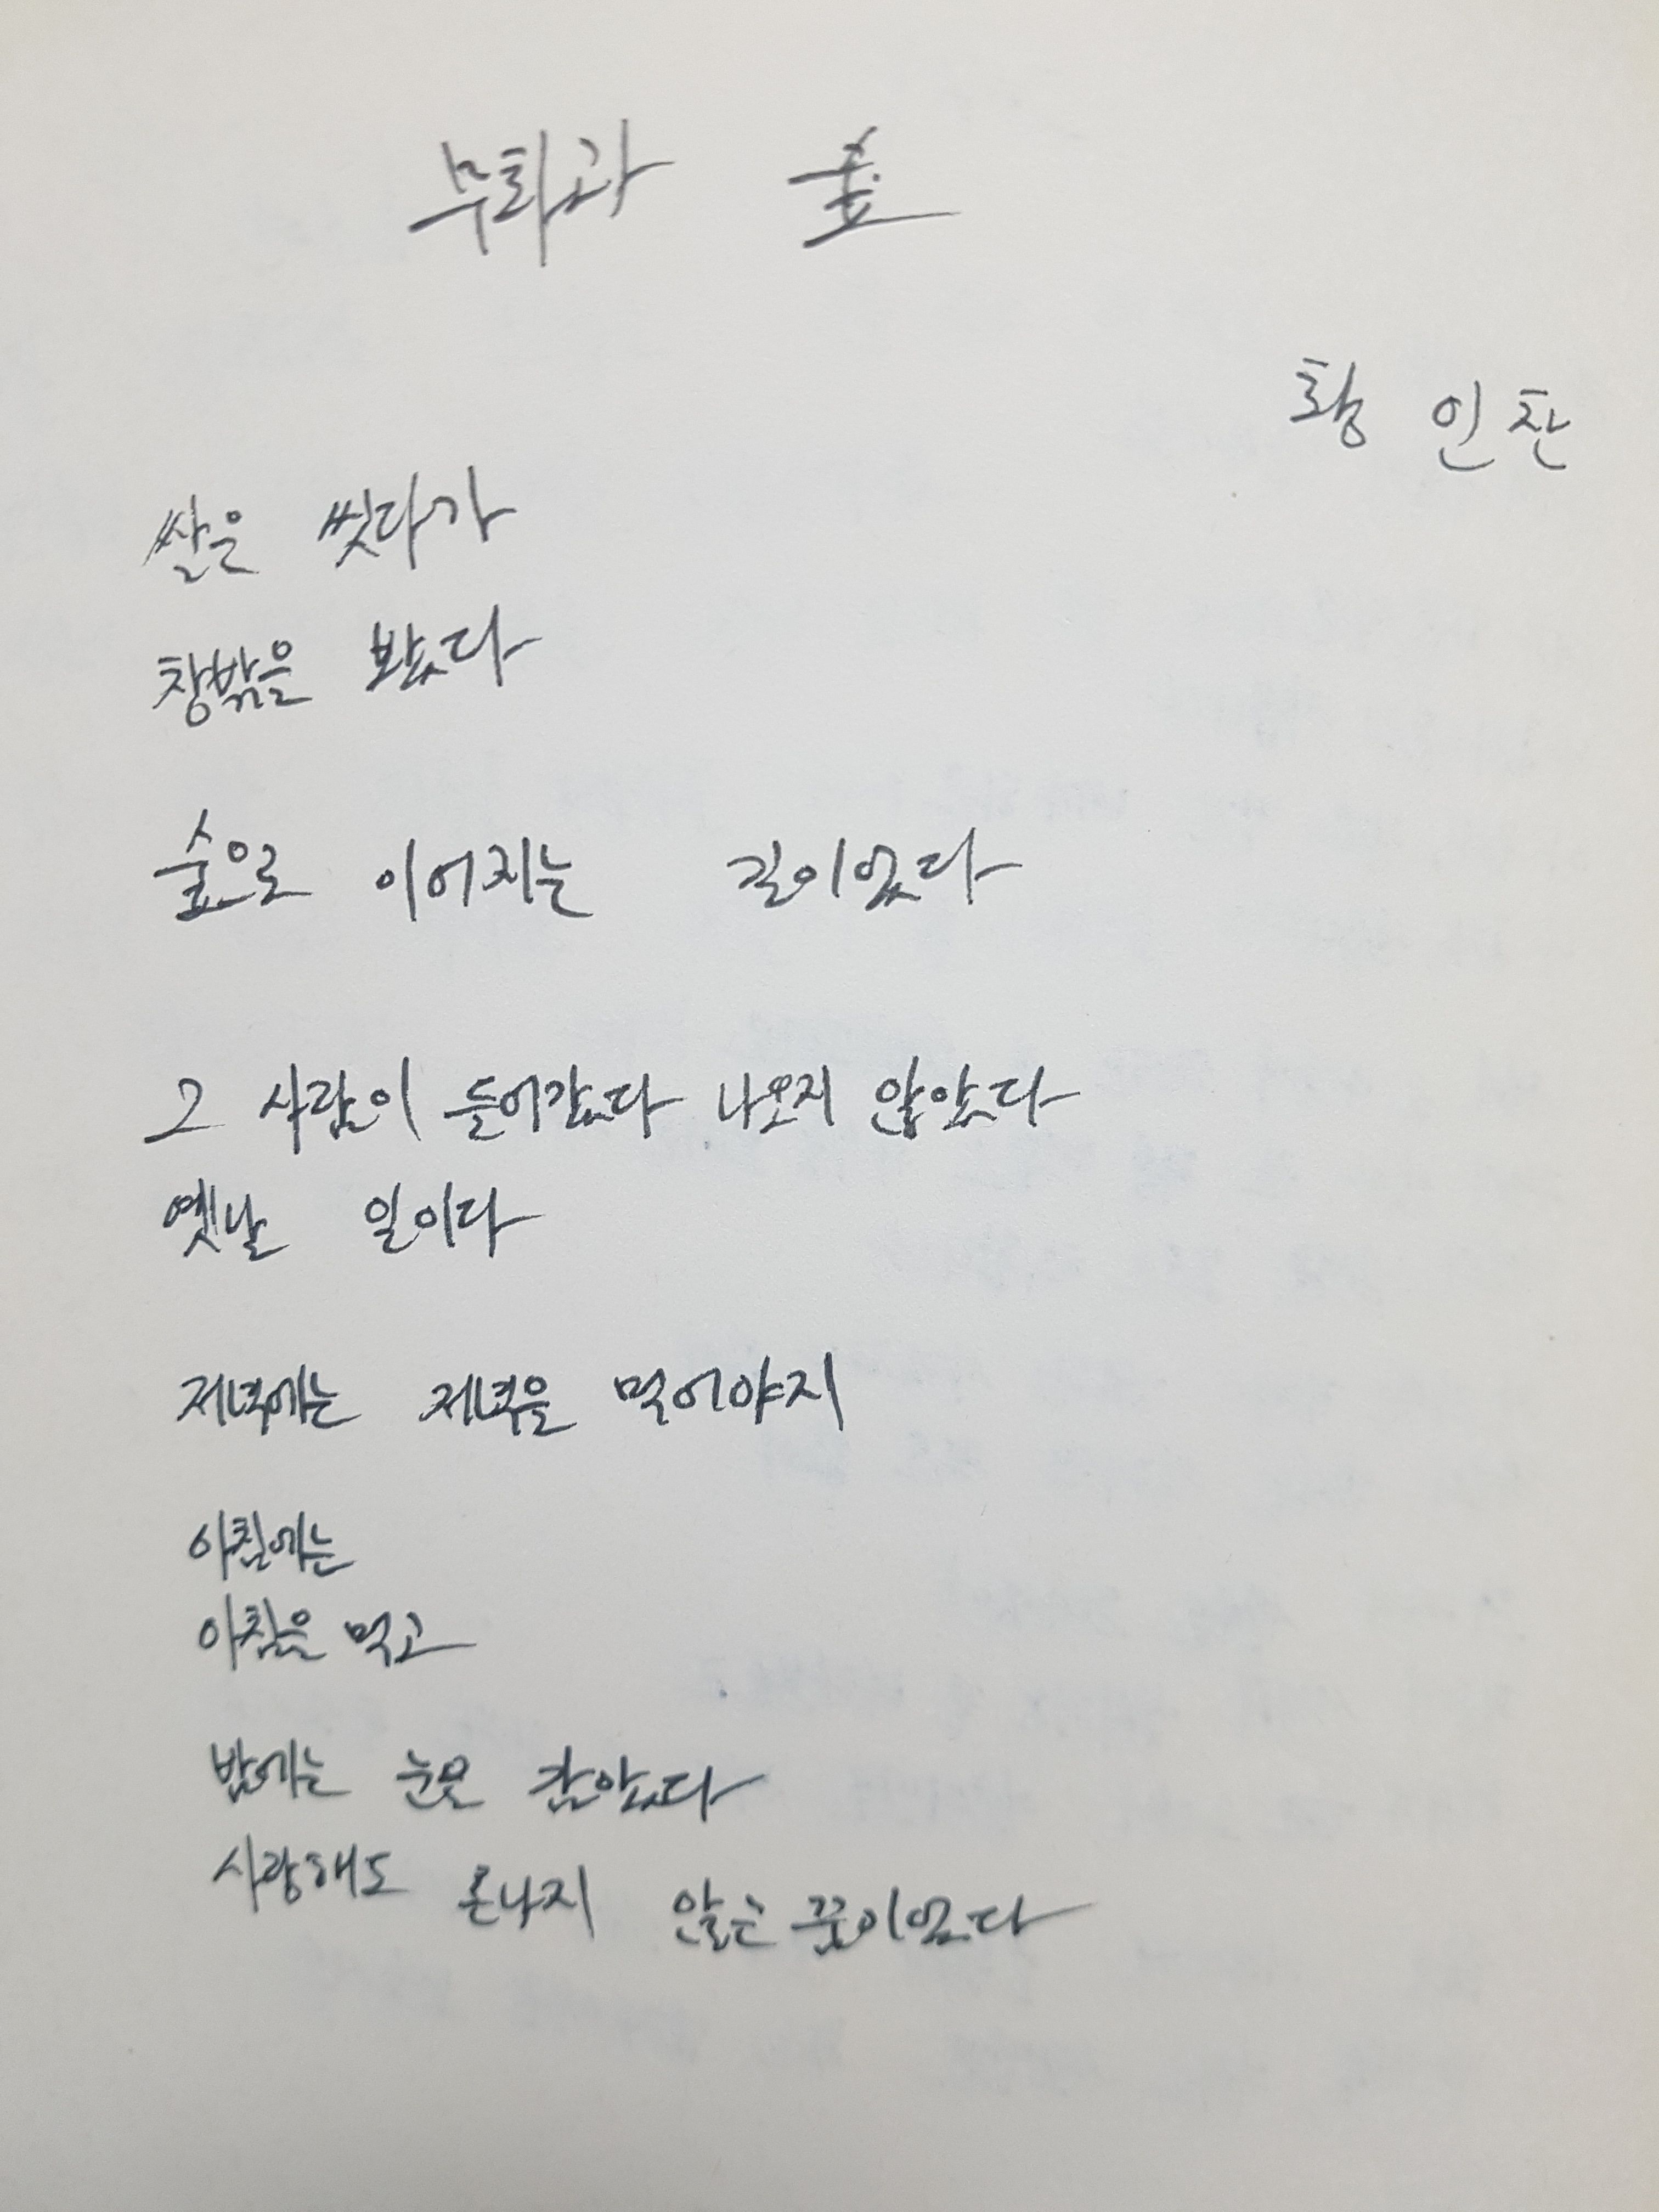 무화과 숲
황인찬
쌀을 씻다가
창밖을 봤다
숲으로 이어지는 길이었다
그 사람이 들어갔다 나오지 않았다
옛날 일이다
저녁에는 저녁을 먹어야지
아침에는
아침을 먹고
밤에는 눈을 감았다
사랑해도 혼나지 않는 꿈이었다